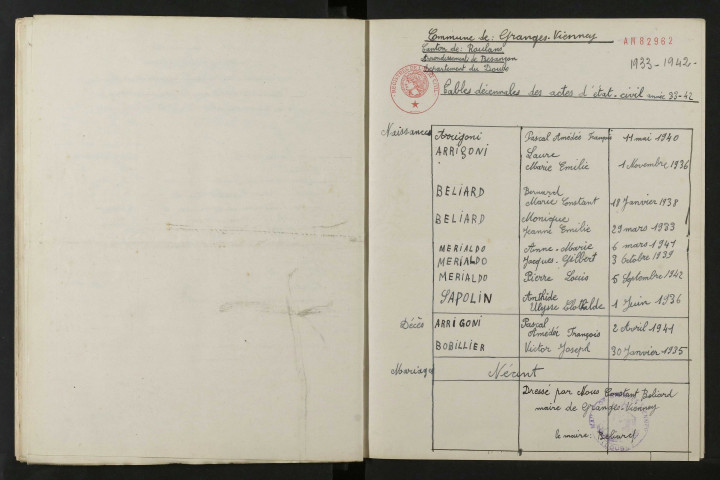 Commune de : Granges-Vienney
AN 82962
Canton de : Roulans
Arrondissement de Besançon
Département du Doubs
1933-1942-
Tables décennales des actes d'état-civil année 33-42
Naissances Arrigoni Pascal Amédée François 11 mai 1940
ARRIGONI Laure
Marie Emilie 1 Novembre 1936
BELIARD Bernard
Marie Constant 18 Janvier 1938
BELIARD Monique
Jeanne Emilie 29 mars 1933
MERIALDO Anne-Marie 6 mars 1941
MERIALDO Jacques-Gilbert 3 Octobre 1939
MERIALDO Pierre Louis 5 Septembre 1942
SAPOLIN
Ulysse Clothilde 1 Juin 1936
Décès ARRIGONI Pascal
Amédée François 2 Avril 1941
BOBILLIER Victor Joseph 30 Janvier 1935
Mariages Néant
Dressé par Nous Constant Beliard
maire de Granges-Vienney
le maire : Beliard